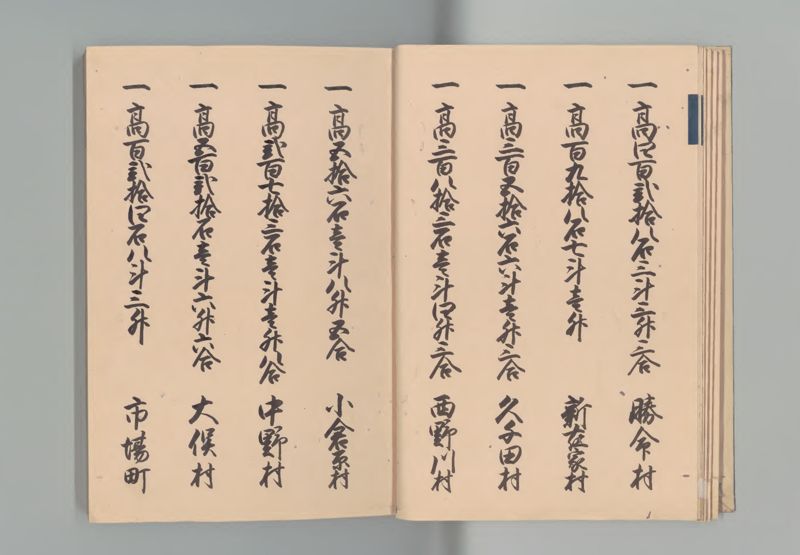 一 高四百弐拾八石三斗三升三合 勝命村
一 高百九拾八石七斗壱升 新在家村
一 高三百五拾六石六斗壱升三合 久千田村
一 高三百八拾三石壱斗四升三合 西野川村
一 高五拾六石壱斗八升五合 小倉原村
一 高弐百七拾三石壱斗壱升八合 中野村
一 高五百弐拾石壱斗六升六合 大俣村
一 高百弐拾四石八斗三升 市場町